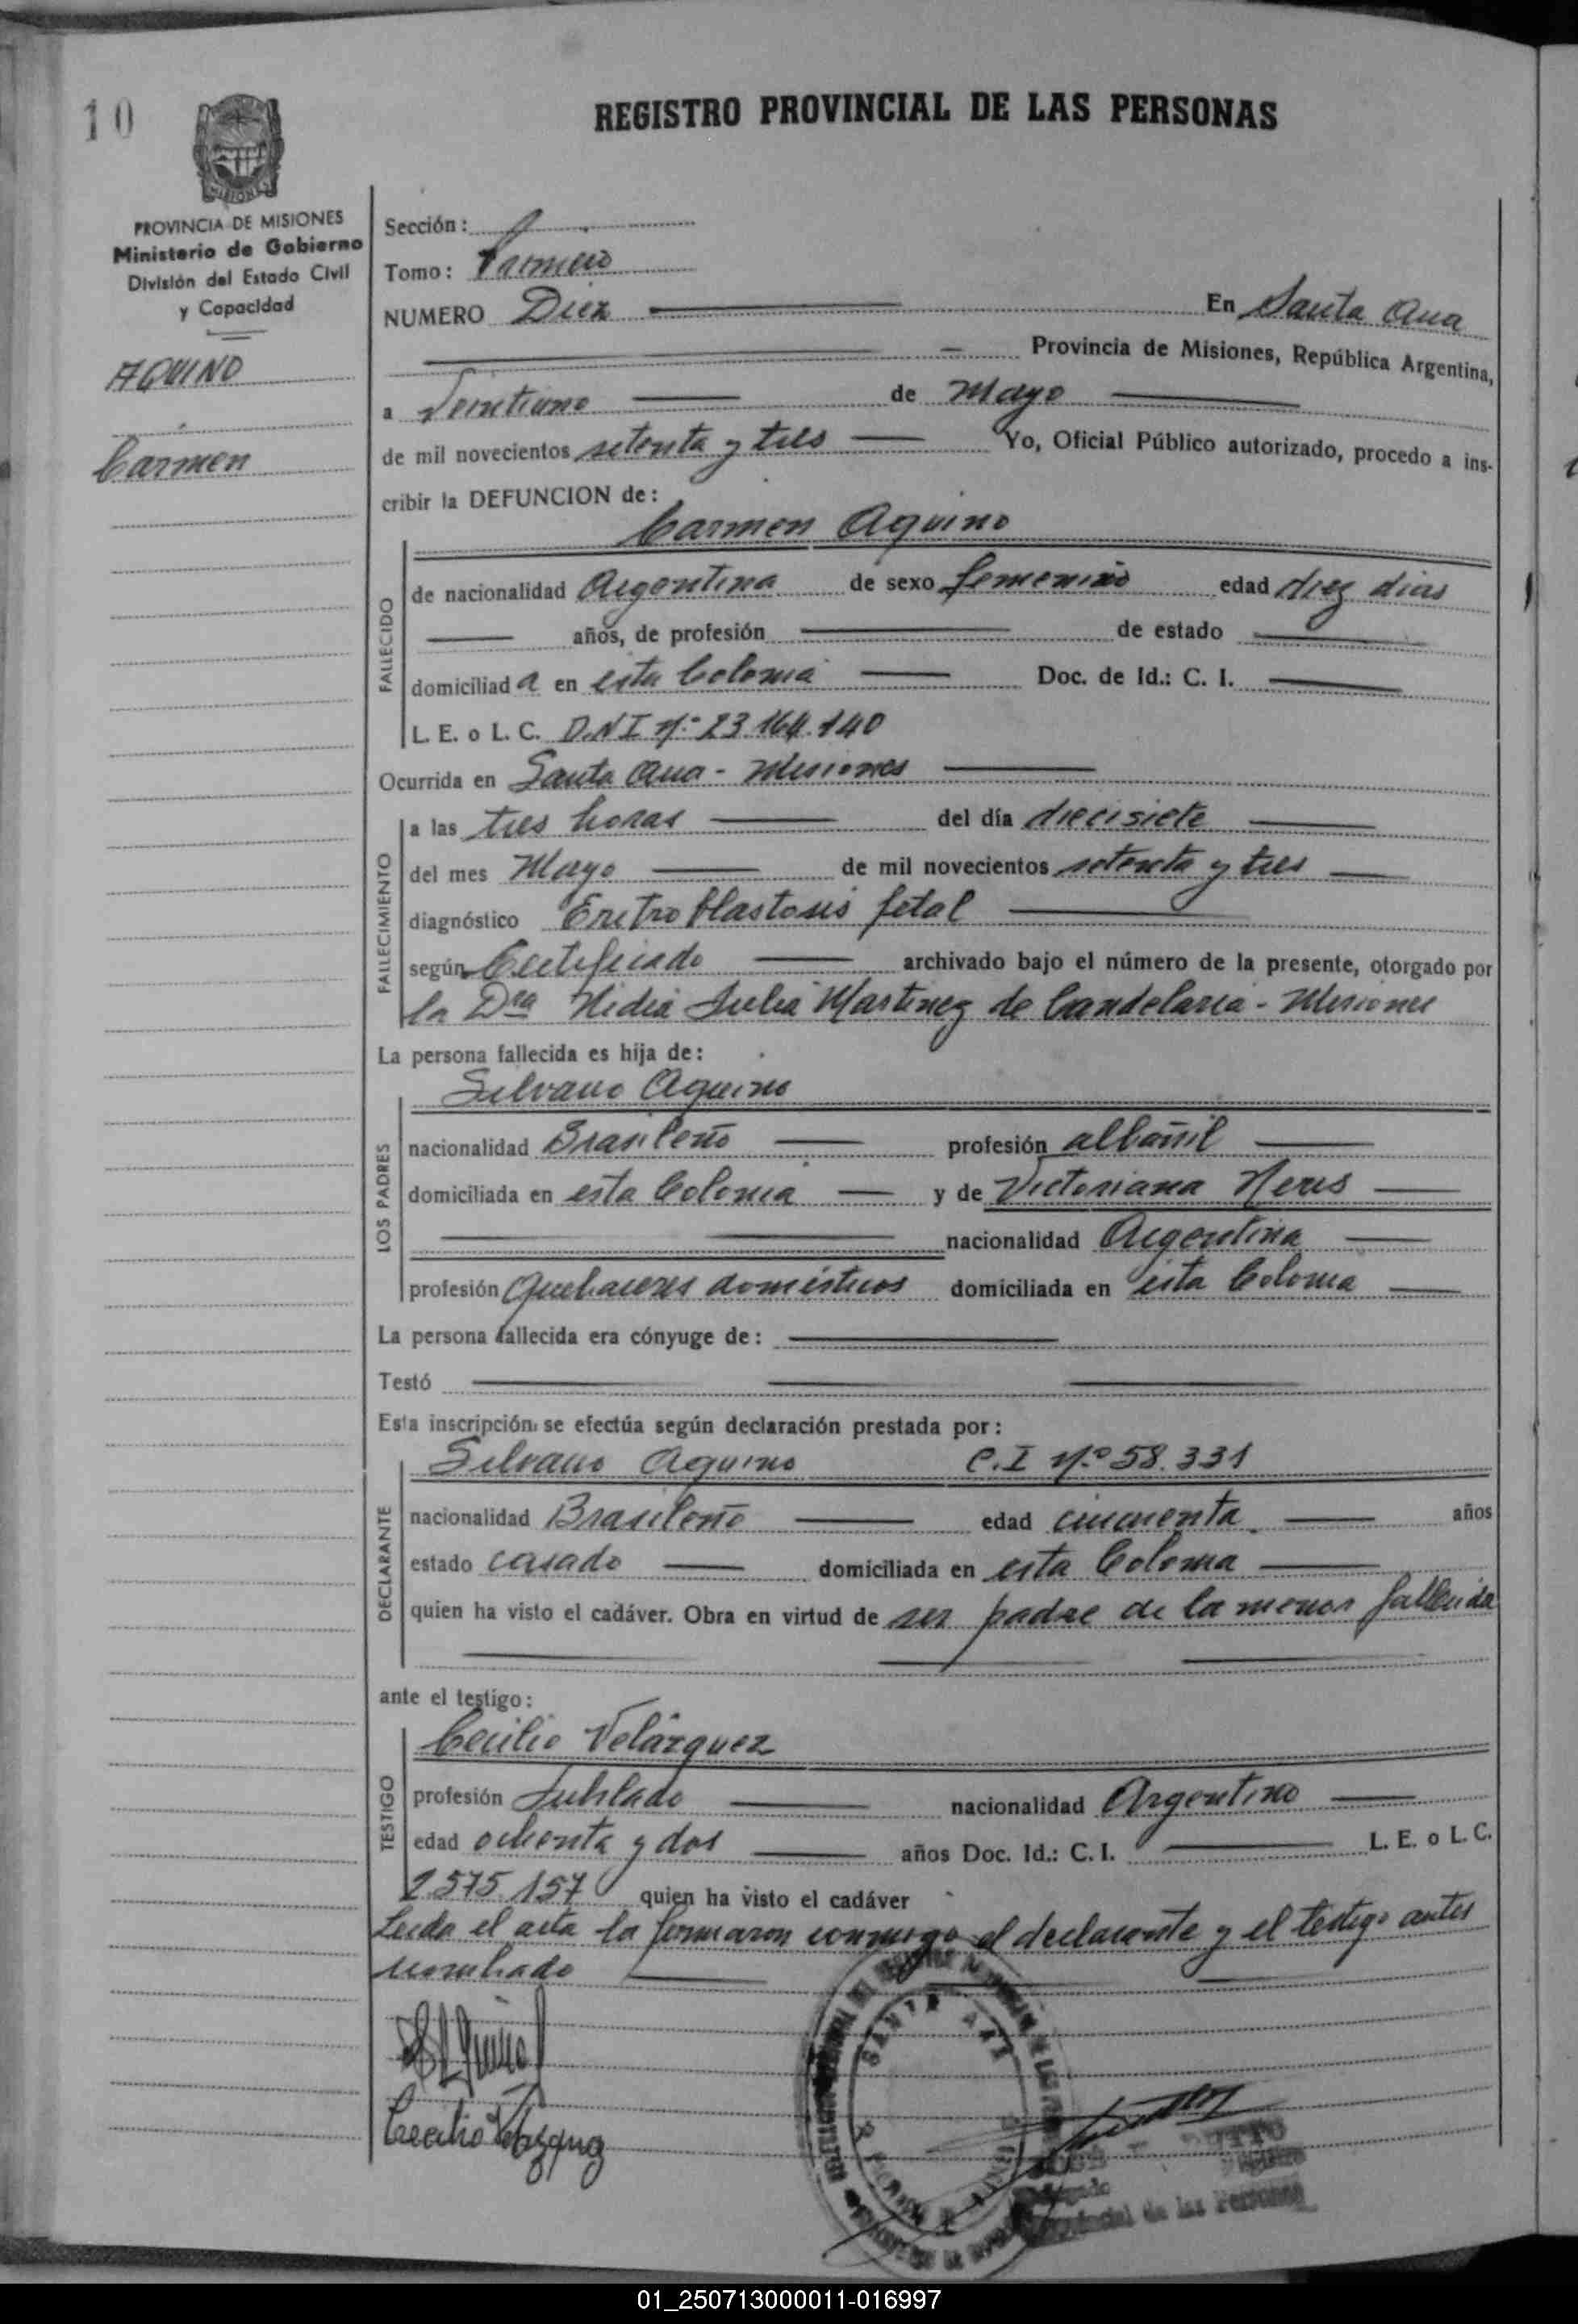 10
REGISTRO PROVINCIAL DE LAS PERSONAS
MISIONES
PROVINCIA DE MISIONES
Ministerio de Gobierno
División del Estado Civil
y Capacidad
AQUINO
Carmen
Sección:
Tomo: Primero
NUMERO Diez En Santa Ana
Provincia de Misiones, República Argentina,
a Veintiuno de Mayo
de mil novecientos setenta y tres Yo, Oficial Público autorizado, procedo a ins-
cribir la DEFUNCION de:
Carmen Aquino
FALLECIDO
de nacionalidad Argentina de sexo femenino edad diez dias
años, de profesión de estado
domiciliada en esta Colonia Doc. de Id.: C. I.
L. E. o L. C. D.N I Nº 23.164.140
Ocurrida en Santa Ana - Misiones
FALLECIMIENTO
a las tres horas del día diecisiete
del mes Mayo de mil novecientos setenta y tres
diagnóstico Eritroblastosis fetal
según Certificado archivado bajo el número de la presente, otorgado por
la Dra Nidia Julia Martinez de Candelaria - Misiones
La persona fallecida es hija de:
Silvano Aquino
LOS PADRES
nacionalidad Brasileño profesión albañil
domiciliada en esta Colonia y de Victoriana Neris
nacionalidad Argentina
profesión Quehaceres domésticos domiciliada en esta Colonia
La persona fallecida era cónyuge de:
Testó
Esta inscripción se efectúa según declaración prestada por:
Silvano Aquino C.I Nº 58.331
DECLARANTE
nacionalidad Brasileño edad cincuenta años
estado casado domiciliada en esta Colonia
quien ha visto el cadáver. Obra en virtud de ser padre de la menor fallecida
ante el testigo:
Cecilio Velázquez
TESTIGO
profesión Jubilado nacionalidad Argentino
edad ochenta y dos años Doc. Id.: C. I. L. E. o L. C.
2575.157 quien ha visto el cadáver
Leida el acta la firmaron conmigo el declarante y el testigo antes
nombrado
SANTA ANA
Cecilio Velazquez
Provincial de las Personas
01_250713000011-016997